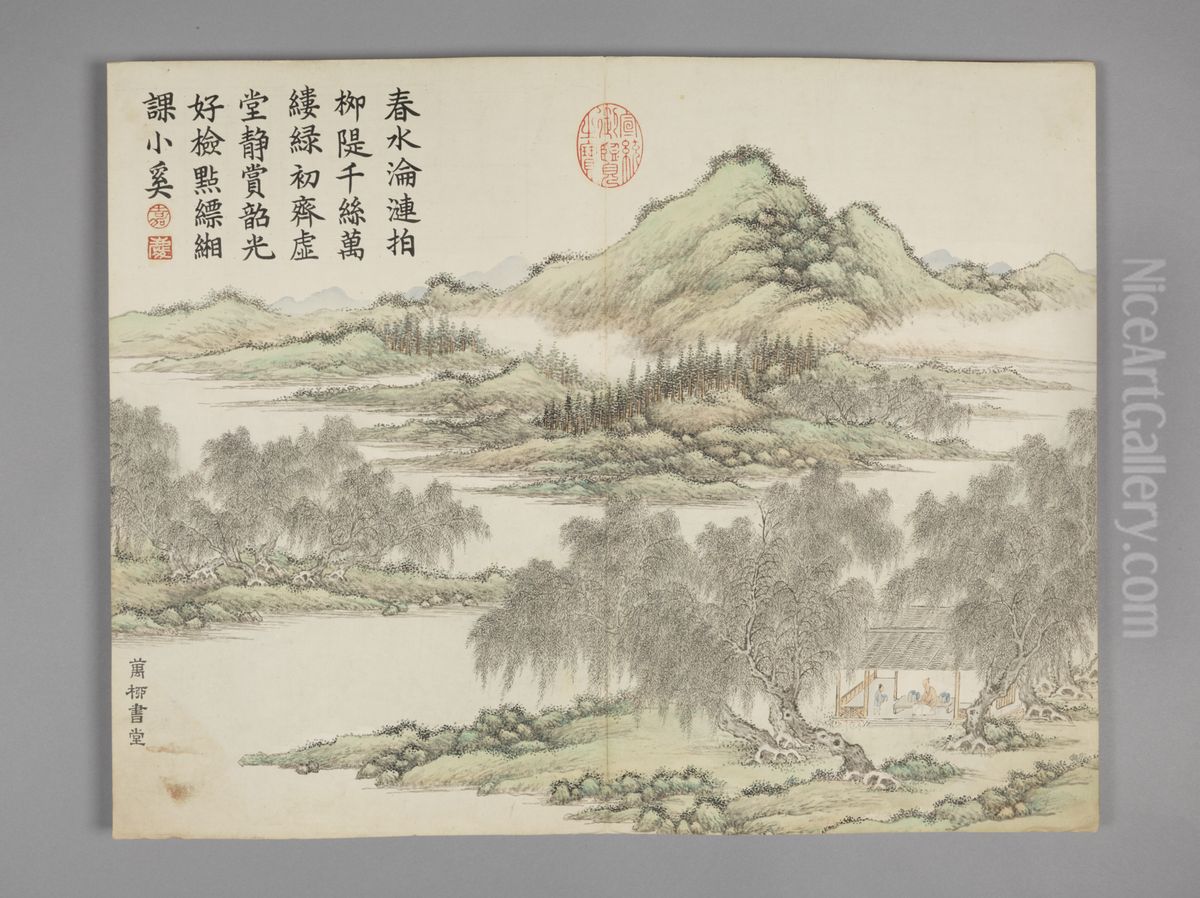 春水淪漣拍
柳隄千絲萬
縷緑初齊虛
堂静賞韶光
好檢點縹緗
課小奚
嘉
慶
宣統
御覽
之寶
萬柳書堂
NiceArtGallery.com